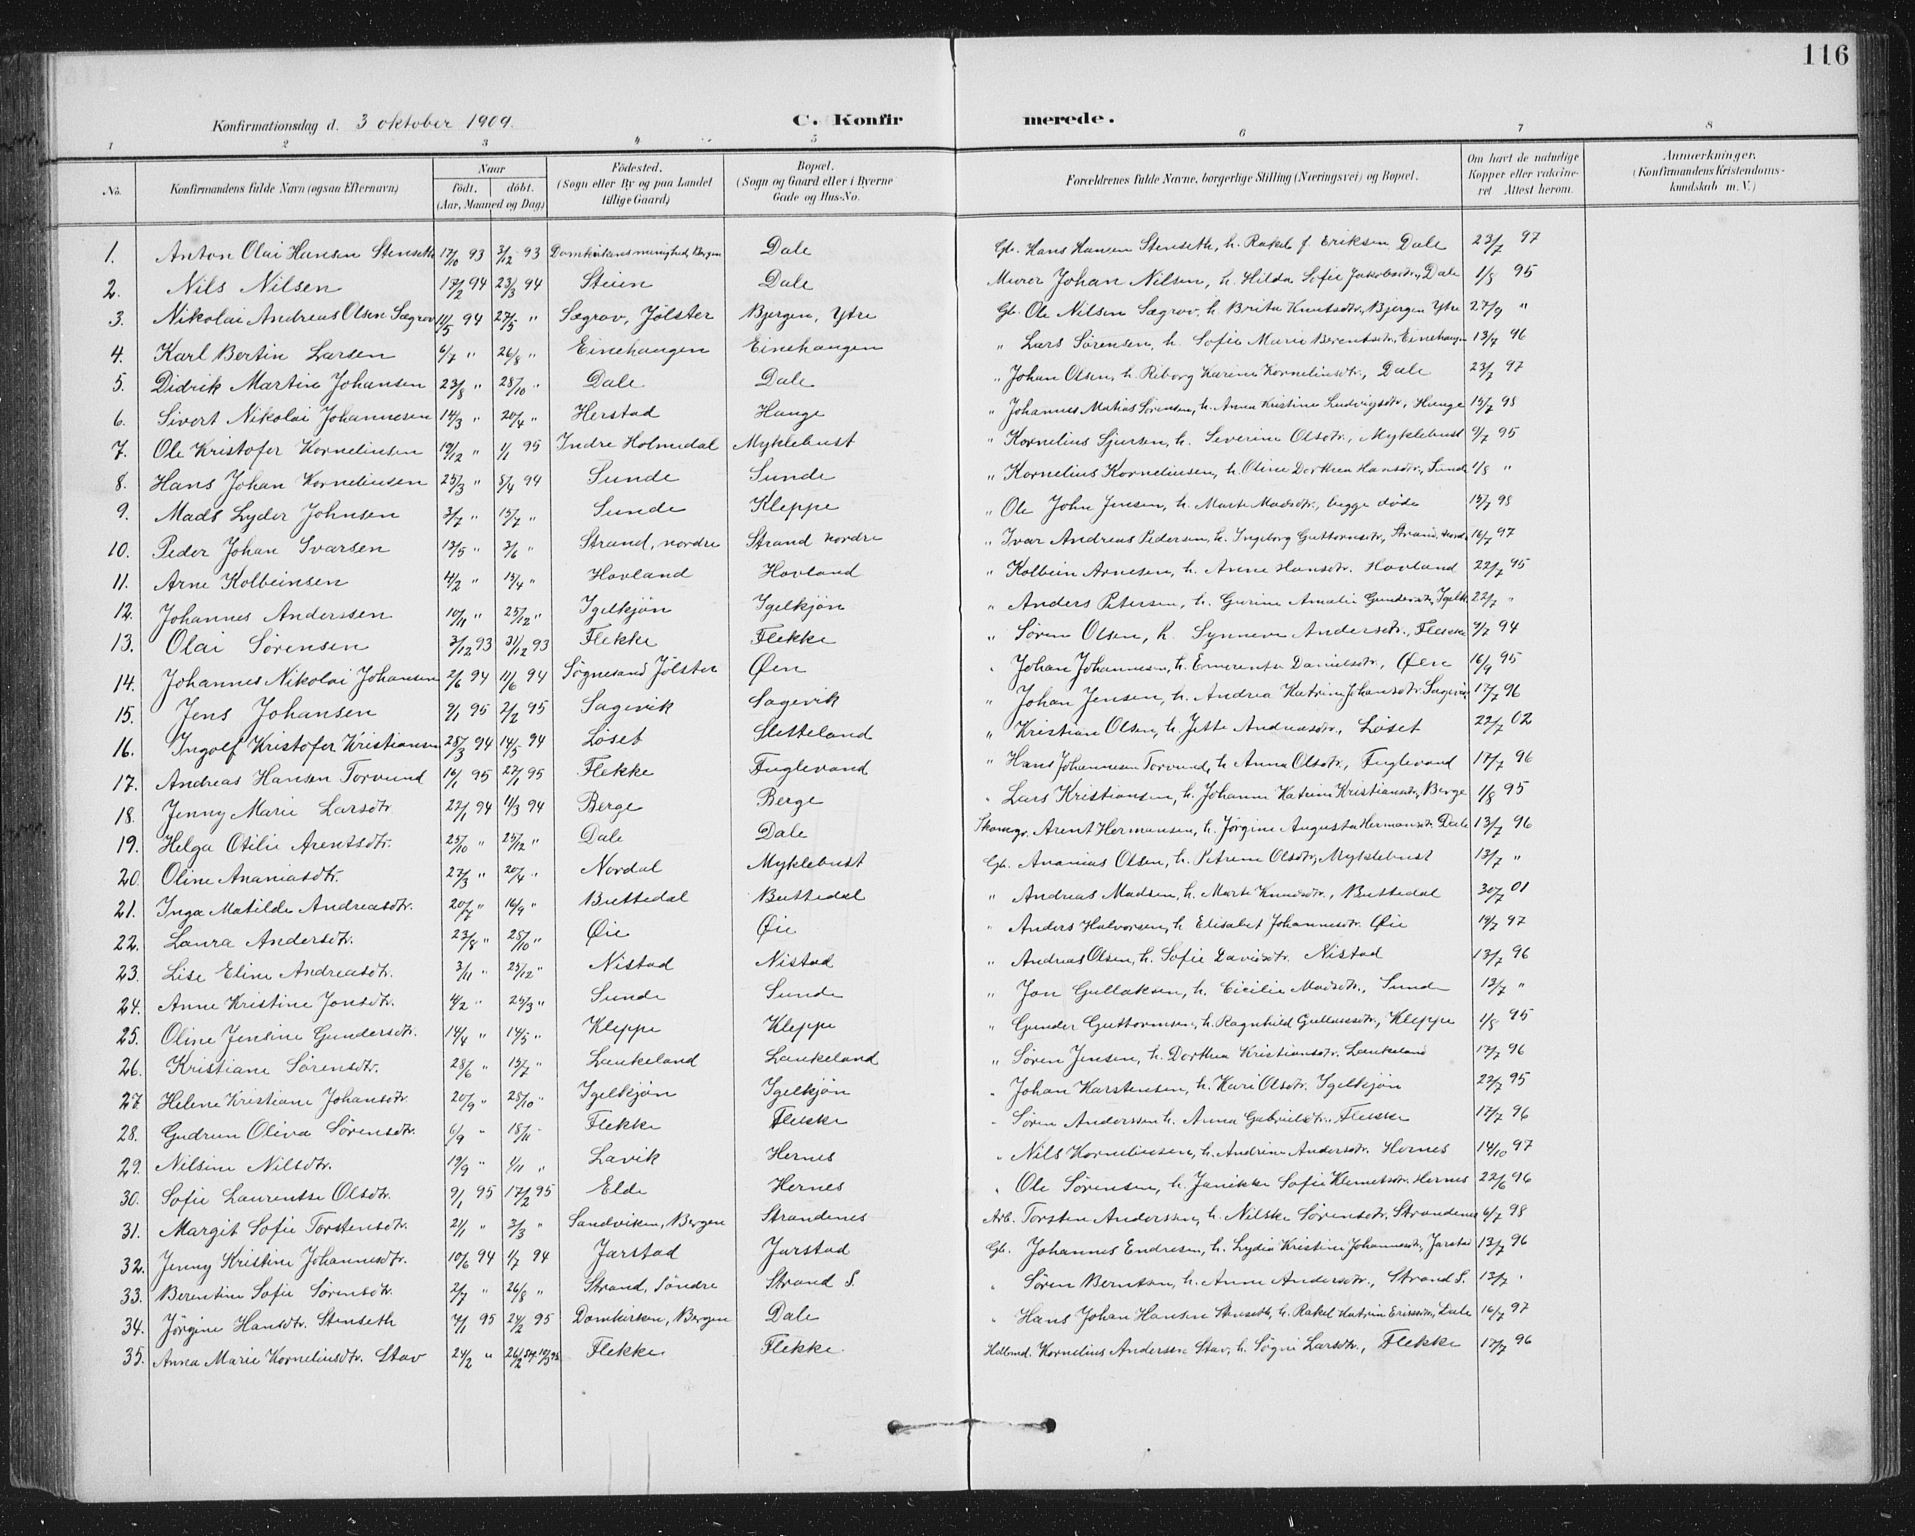 116
Konfirmationsdag d. 3 oktober 1909. C. Konfirmerede.
1 2 3 4 5 6 7 8
No. Konfirmandens fulde Navn (ogsaa Efternavn) Naar født. døbt. (Aar, Maaned og Dag) Fødested. (Sogn eller By og paa Landet tillige Gaard) Bopæl. (Sogn og Gaard eller i Byerne Gade og Hus-No. Forældrenes fulde Navne, borgerlige Stilling (Næringsvei) og Bopæl. Om havt de naturlige Kopper eller vakcineret Attest herom. Anmærkninger. (Konfirmandens Kristendomskundskab m. V.)
1. Anton Olai Hansen Stenseth 17/10 93 3/12 93 Domkirkens menighed, Bergen Dale Gb. Hans Hansen Stenseth, h. Rakel f. Eriksen Dale 23/7 97
2. Nils Nilsen 17/2 94 23/3 94 Steien Dale Murer Johan Nilsen, h. Hilda Sofie Jakobsdtr, Dale 1/8 95
3. Nikolai Andreas Olsen Sægrov 11/5 94 27/5 " Sægrov, Jølster Bjergen, Ytre Gb. Ole Nilsen Sægrov, h. Brita Knutsdtr, Bjergen Ytre 27/9 "
4. Karl Bertin Larsen 6/7 " 26/8 " Einehaugen Einehaugen " Lars Sørensen, h. Sofie Marie Berentsdtr, Einehaugen 13/7 96
5. Didrik Martin Johansen 23/8 " 28/10 " Dale Dale " Johan Olsen, h. Riborg Karine Kornelinsdtr, Dale 23/7 97
6. Sivert Nikolai Johannesen 14/3 " 20/4 " Herstad Hauge " Johannes Matias Sørensen, h. Anna Kristine Ludvigsdtr, Hauge 15/7 98
7. Ole Kristofer Kornelinsen 19/12 " 1/1 95 Indre Holmedal Myklebust " Kornelius Sjursen, h. Severine Olsdtr, Myklebust 9/7 95
8. Hans Johan Kornelinsen 25/3 " 8/4 94 Sunde Sunde " Kornelius Kornelinsen, h. Oline Dorthea Hansdtr, Sunde 1/8 "
9. Mads Lyder Johnsen 3/7 " 15/7 " Sunde Kleppe " Ole John Jensen, h. Marte Madsdtr, begge døde 15/7 98
10. Peder Johan Ivarsen 13/5 " 3/6 " Strand, nordre Strand nordre " Ivar Andreas Pedersen, h. Ingeborg Guttormsdtr, Strand, nord 16/7 97
11. Arne Kolbeinsen 4/2 " 15/4 " Hovland Hovland " Kolbein Arnesen, h. Anne Hansdtr. Hovland 22/7 95
12. Johannes Anderssen 10/11 " 25/12 " Igelkjøn Igelkjøn " Anders Petersen, h. Gurine Amalie Gundersdtr, Igelk 22/7 "
13. Olai Sørensen 3/12 93 31/12 93 Flekke Flekke " Søren Olsen, h. Synneve Andersdtr, Flekke 9/7 94
14. Johannes Nikolai Johansen 2/6 94 11/6 94 Søgnesand Jølster Øen " Johan Johannesen, h. Emerentse Danielsdtr, Øen 16/9 95
15. Jens Johansen 9/1 95 2/2 95 Sagevik Sagevik " Johan Jensen, h. Andrea Katrine Johansdtr Sagevik 17/7 96
16. Ingolf Kristofer Kristiansen 28/3 94 14/5 94 Løset Sletteland " Kristian Olsen, h. Jette Andreasdtr, Løset 22/7 02
17. Andreas Hansen Torvund 16/1 95 27/1 95 Flekke Fuglevand " Hans Johannesen Torvund, h. Anna Olsdtr, Fuglevand 17/7 96
18. Jenny Marie Larsdtr 22/1 94 11/3 94 Berge Berge " Lars Kristiansen, h. Johanne Katrine Kristiansdtr, Berge 1/8 95
19. Helga Otilie Arentsdtr. 25/10 " 25/12 " Dale Dale Skomgr. Arent Hermansen, h. Jørgine Augusta Hermansdtr Dale 13/7 96
20. Oline Ananiasdtr. 27/3 " 20/4 " Nordal Myklebust Gb. Ananias Olsen, h. Petrine Olsdtr, Myklebust 13/7 "
21. Inga Matilde Andreasdtr. 20/7 " 16/9 " Buttedal Buttedal " Andreas Madsen, h. Marte Knudsdtr, Buttedal 30/7 01
22. Laura Andersdtr. 23/8 " 28/10 " Øie Øie " Anders Halvorsen, h. Elisabet Johannesdtr. Øie 14/7 97
23. Lise Eline Andreasdtr. 3/11 " 25/12 " Nistad Nistad " Andreas Olsen, h. Sofie Davidsdtr. Nistad 13/7 96
24. Anne Kristine Jonsdtr. 4/2 " 25/3 " Sunde Sunde " Jon Gullaksen, h. Cicilie Madsdtr, Sunde 13/7 "
25. Oline Jensine Gundersdtr. 14/4 " 14/5 " Kleppe Kleppe " Gunder Guttormsen, h. Ragnhild Gullaksdtr, Kleppe 1/8 95
26. Kristiane Sørensdtr. 28/6 " 15/7 " Laukeland Laukeland " Søren Jensen, h. Dorthea Kristiansdtr. Laukeland 17/7 96
27. Helene Kristiane Johansdtr 20/9 " 28/10 " Igelkjøn Igelkjøn " Johan Karstensen, h. Kari Olsdtr. Igelkjøn 22/7 95
28. Gudrun Oliva Sørensdtr. 6/9 " 18/11 " Flekke Flekke " Søren Anderssen h. Anna Gabrielsdtr. Flekke 17/7 96
29. Nilsine Nilsdtr. 19/9 " 1/11 " Lavik Hernes " Nils Kornelinsen, h. Andrine Andersdtr. Hernes 14/10 97
30. Sofie Laurentse Olsdtr. 9/1 95 17/2 95 Elde Hernes " Ole Sørensen, h. Janikke Sofie Klemetsdtr. Hernes 22/6 96
31. Margit Sofie Torstensdtr. 21/1 " 3/3 " Sandviken, Bergen Strandenes Arb. Torsten Anderssen, h. Nilske Sørensdtr. Strandenes 6/7 98
32. Jenny Kristine Johannesdtr. 10/6 94 1/7 94 Jarstad Jarstad Gb. Johannes Endresen, h. Lydia Kristine Johannesdtr, Jarstad 13/7 96
33. Berentine Sofie Sørensdtr. 2/7 " 26/8 " Strand, Søndre Strand S. " Søren Berntsen, h. Anne Andersdtr., Strand S. 13/7 "
34. Jørgine Hansdtr. Stenseth 7/1 95 24/2 95 Domkirken, Bergen Dale " Hans Johan Hansen Stenseth, h. Rakel Katrine Eriksdtr, Dale 16/7 97
35. Anna Marie Kornelinsdtr. Stav 24/2 " 26/2 Flekke Flekke Kornelius Andersen Stav, h. Søgni Larsdtr., Flekke 17/7 96